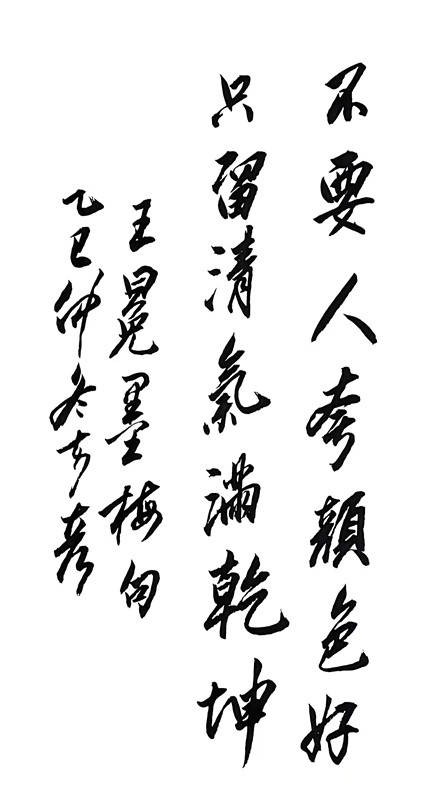 不要人夸顏色好
只留清氣滿乾坤
王冕墨梅句
乙巳仲冬